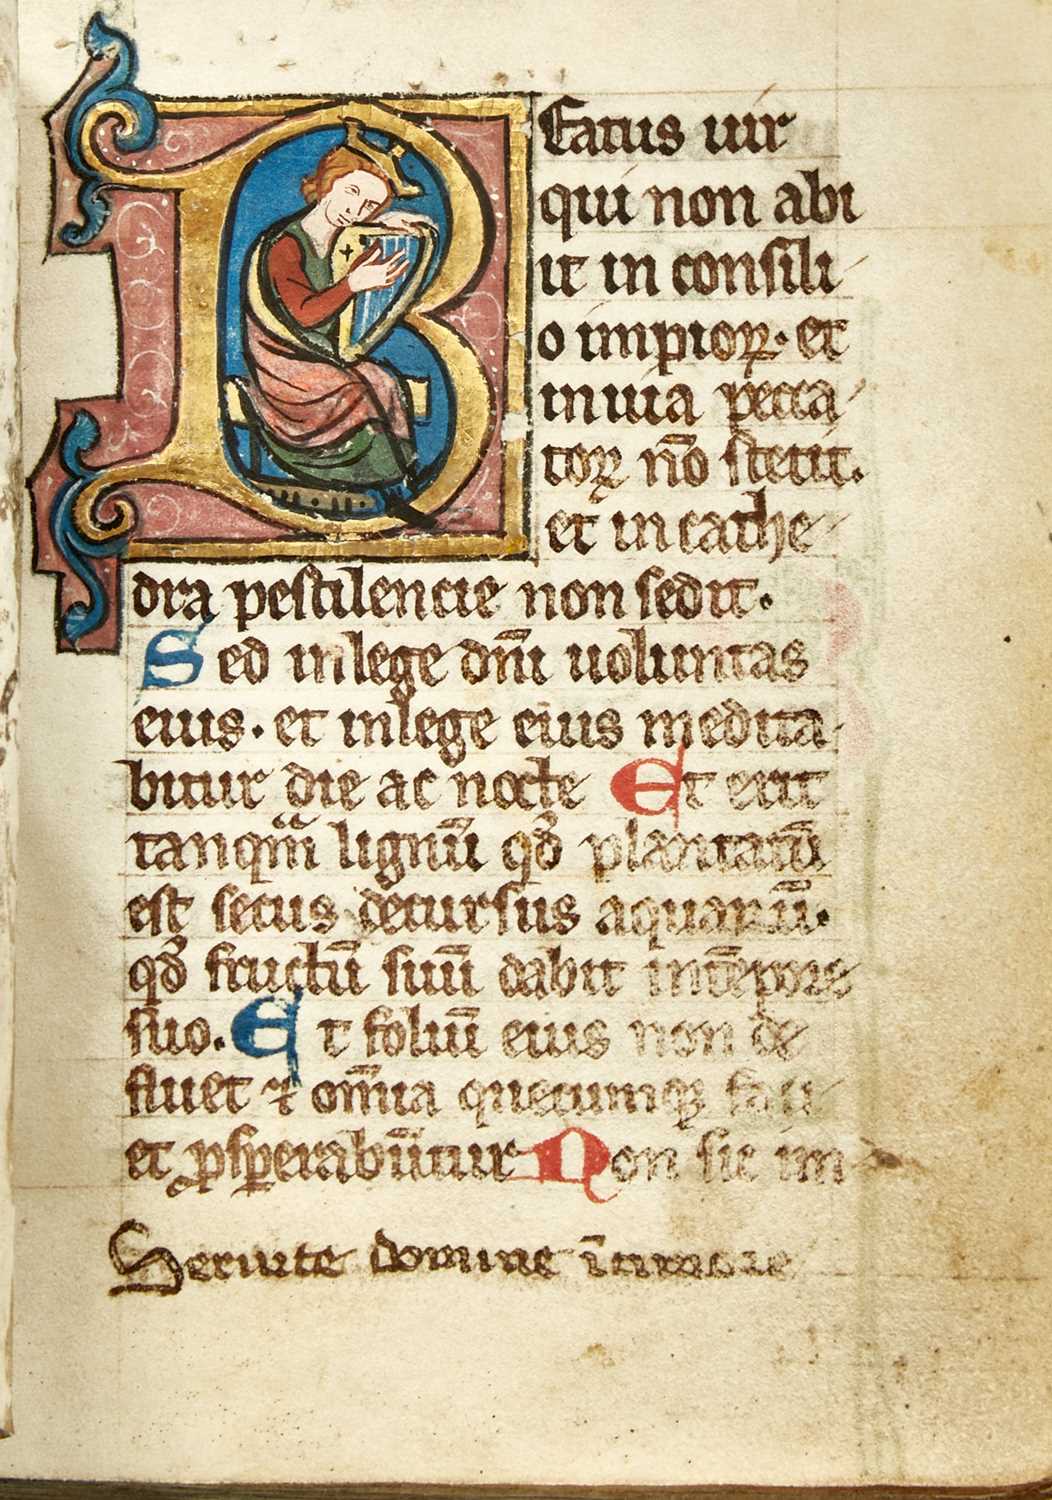 Beatus uir
qui non abi
it in consili
o impioꝝ. et
in uia pecca
toꝝ nō stetit.
et in cathe
dra pestilencie non sedit.
Sed in lege dn̄i uoluntas
eius. et in lege eius medita
bitur die ac nocte Et erit
tanqͣm lignū qď plantatū
est secus decursus aquarū.
qď fructū suū dabit in tēpore
suo. Et foliū eius non de
fluet ⁊ om̄ia quecumqꝫ faci
et ꝓsꝑerabūtur Non sic im
Seruite domine ī timore